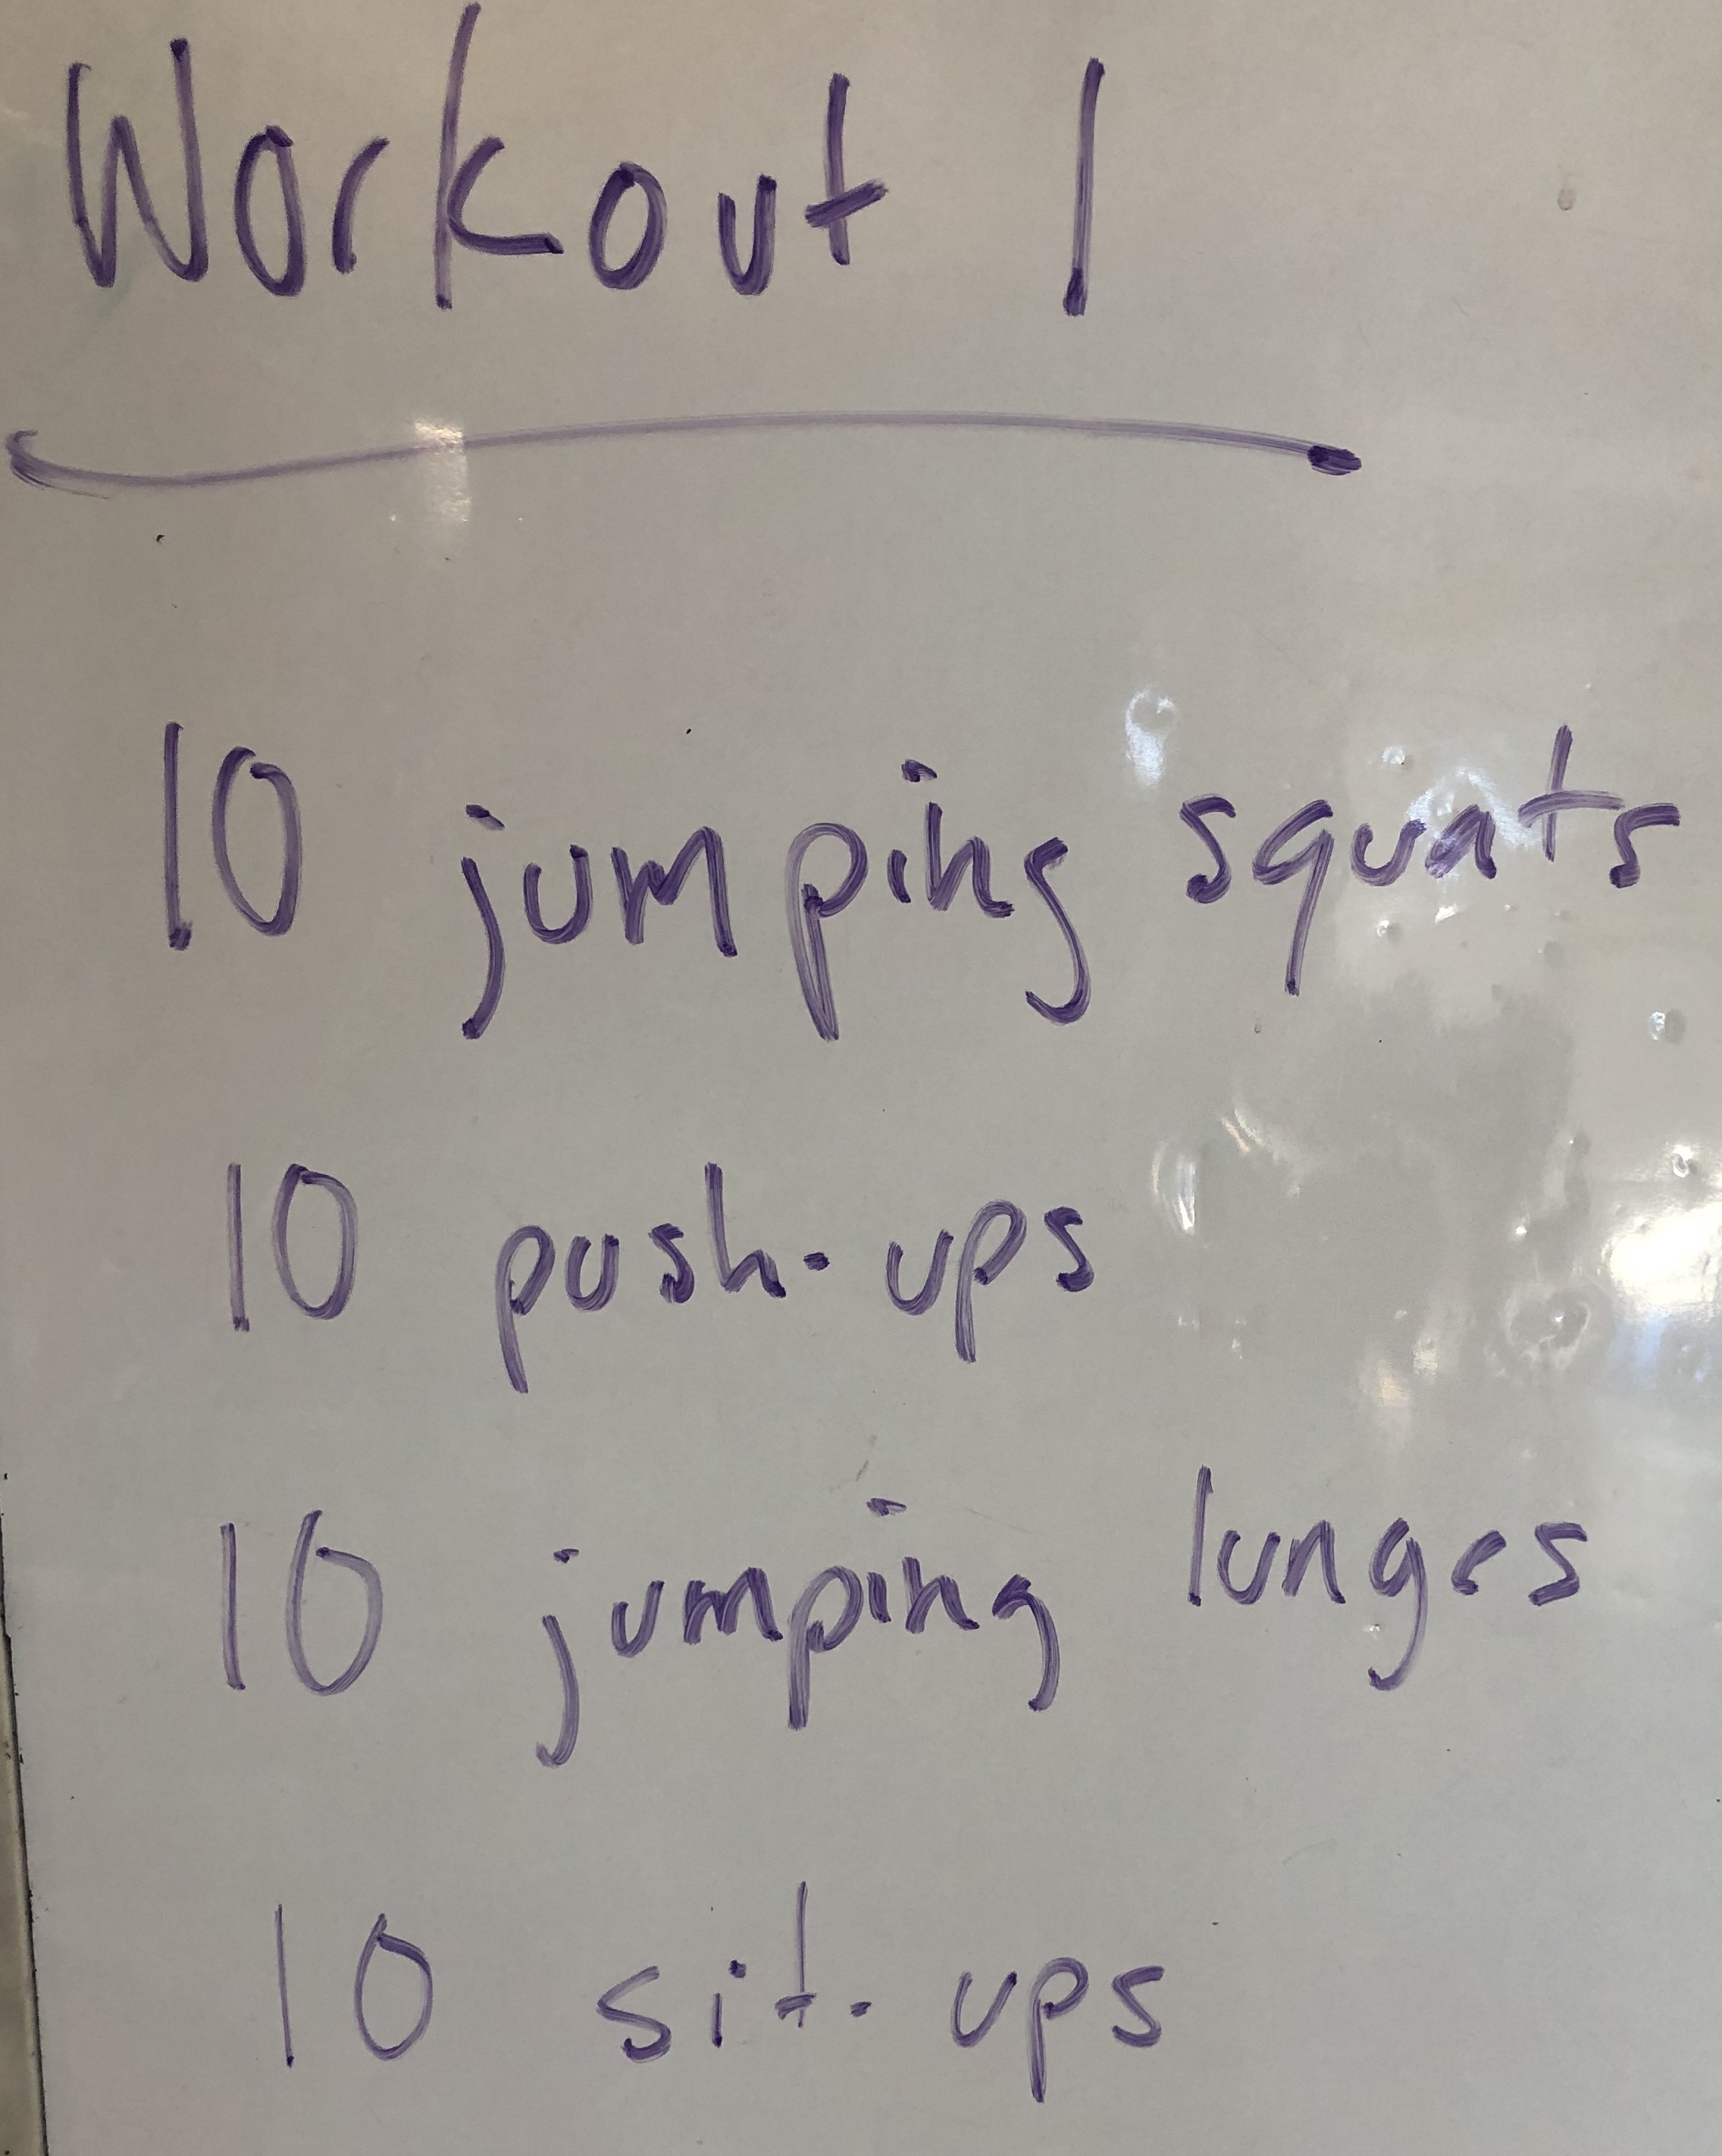 Workout 1
10 jumping squats
10 push-ups
10 jumping lunges
10 sit-ups